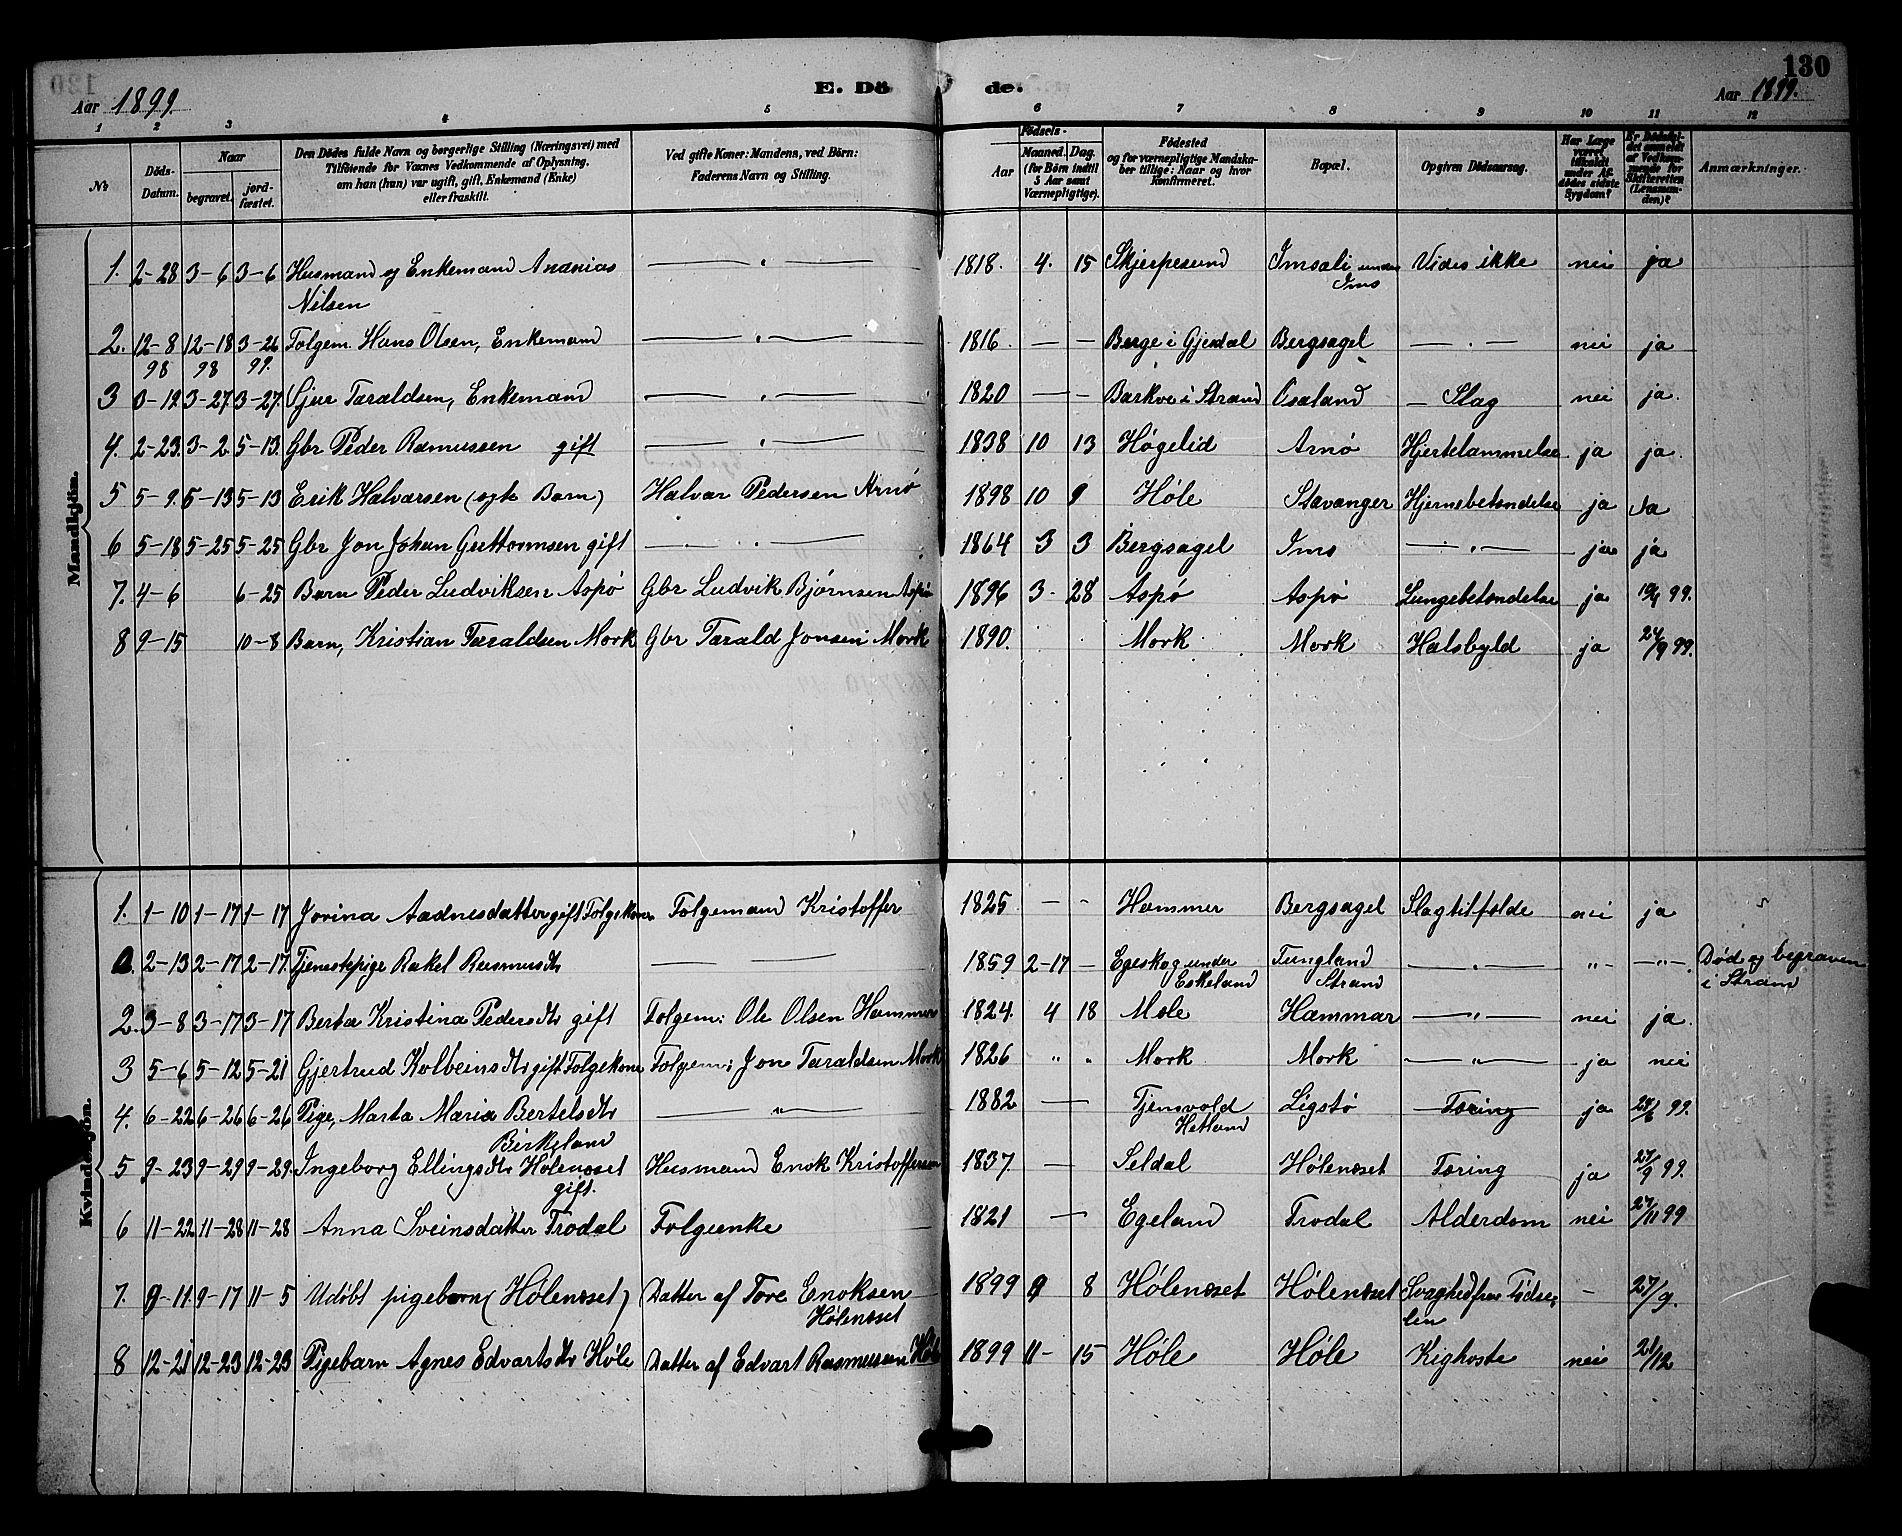 130
Aar 1899. E. Dö de. Aar 1899.
1 2 3 4 5 6 7 8 9 10 11 12
№ Döds-Datum. Naar begravet. jord-fæstet. Den Dödes fulde Navn og borgerlige Stilling (Næringsvei) med Tilföiende for Voxnes Vedkommende af Oplysning, om han (hun) var ugift, gift, Enkemand (Enke) eller fraskilt. Ved gifte Koner: Mandens, ved Börn: Faderens Navn og Stilling. Födsels- Aar Maaned. Dag. (for Börn indtil 5 Aar samt Værnepligtige). Födested og for værnepligtige Mandskaber tillige: Naar og hvor konfirmeret. Bopæl. Opgiven Dödsaarsag. Har Læge været tilkaldt under Afdödes sidste Sygdom? Er Dödsfaldet anmeldt af Vedkommende for Skifteretten (Lensmanden)? Anmærkninger.
Mandkjön.
1. 2-28 3-6 3-6 Husmand og Enkemand Ananias — " — 1818. 4. 15 Skjerpesund Imsali under Vides ikke nei ja
Nilsen Ims
2. 12-8 12-18 3-26 Folgem. Hans Olsen, Enkemand — " — 1816. — — Berge i Gjesdal Bergsagel — " — nei ja
98 98 99.
3 3-27 3-27. Sjur Taraldsen, Enkemand — " — 1820 — — i Strand Osaland — Slag nei ja.
4. 2-23. 3-2. 5-13. Gbr Peder Rasmussen gift — " — 1838 10 13 Høgelid Arnø Hjertelammelse ja ja.
5 5-9. 5-13 5-13 Erik Halvarsen (egte Barn) Halvar Pedersen Arnø 1898 10 9 Høle Stavanger Hjernebetendelse ja Ja
6 5-18 5-25 5-25 Gbr Jon Johan Guttormsen gift — " — 1864 3 3 Bergsagel Ims — " — ja ja
7. 4-6 6-25 Barn Peder Ludviksen Aspø Gbr Ludvik Bjørnsen Aspø 1896 3. 28 Aspø Aspø Lungebetendelse ja 99.
8 9-15 10-8 Barn, Kristian Taraldsen Mork Gbr Tarald Jonsen Mork 1890. Mork Mork Halsbyld ja 24/9 99.
Kvindekjön.
1. 1-10 1-17 1-17 Jorina Aadnesdatter gift Folgekone Folgemand Kristoffer 1825 — " Hammer Bergsagel Slagtilfælde nei ja
2-13 2-17 2-17. Tjenestepige Rakel Rasmusdtr — — 1859 2-17 — Egeskog under Tungland — " — " — " — Død og begraven
Eskeland Strand i Strand
2. 3-8 3-17 3-17 Berta Kristina Pedersdtr gift Folgem: Ole Olsen Hammer 1824. 4 18 Mæle Hammar — " — nei ja.
3 5-6 5-12 5-21 Gjertrud Kolbeinsdtr gift Folgekone Folgem: Jon Taraldsen Mork 1826 " " Mork Mork — " — ja nei
4. 6-22 6-26 6-26 Pige, Marta Maria Bertelsdtr — " — 1882 — Tjensvold Ligstø Tæring ja 99.
Birkeland Hetland
5 9-23 9-29 9-29. Ingeborg Ellingsdtr Hølenæset Husmand Enok Kristoffersen 1837. — Seldal Hølenæset Tæring ja 27/9 99.
gift.
6 11-22 11-28 11-28 Anna Sveinsdatter Trodal Folgeenke 1821 — Egeland Trodal Alderdom nei 27/11 99
7. 9-11 9-17 11-5 Udøbt pigebarn (Hølenæset) Datter af Tore Enoksen 1899 9 8 Hølenæset Hølenæset Svaghed fra Fødse — 27/9.
Hølenæset len
8 12-21 12-23 12-23 Pigebarn Agnes Edvartsdtr Høle Datter af Edvart Rasmussen Høle 1899 11- 15 Høle Høle Kighoste nei 21/12